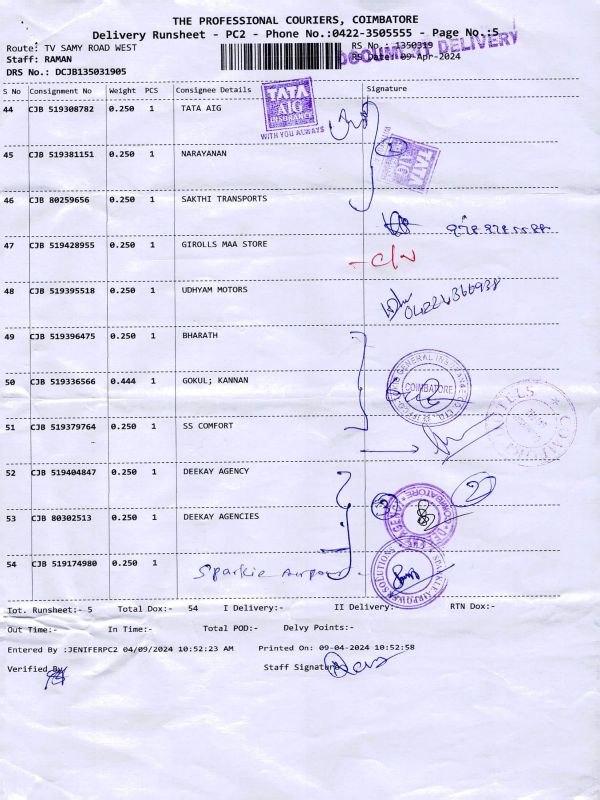 THE PROFESSIONAL COURIERS, COIMBATORE
Delivery Runsheet - PC2 - Phone No.:0422-3505555 - Page No.:5
Route: TV SAMY ROAD WEST
RS No.: 1350319
DOCUMENT DELIVERY
Staff: RAMAN
RS Date: 09-Apr-2024
DRS No.: DCJB135031905
S No Consignment No Weight PCS Consignee Details Signature
44 CJB 519308782 0.250 1 TATA AIG
TATA
AIG
INSURANCE
WITH YOU ALWAYS
45 CJB 519381151 0.250 1 NARAYANAN
TATA
46 CJB 80259656 0.250 1 SAKTHI TRANSPORTS
47 CJB 519428955 0.250 1 GIROLLS MAA STORE
C/N
48 CJB 519395518 0.250 1 UDHYAM MOTORS
04224366938
49 CJB 519396475 0.250 1 BHARATH
50 CJB 519336566 0.444 1 GOKUL; KANNAN
COIMBATORE
51 CJB 519379764 0.250 1 SS COMFORT
52 CJB 519404847 0.250 1 DEEKAY AGENCY
2
53 CJB 80302513 0.250 1 DEEKAY AGENCIES
3
54 CJB 519174980 0.250 1
Sparkie Airpower
Tot. Runsheet:- 5 Total Dox:- 54 I Delivery:- II Delivery:- RTN Dox:-
Out Time:- In Time:- Total POD:- Delvy Points:-
Entered By :JENIFERPC2 04/09/2024 10:52:23 AM Printed On: 09-04-2024 10:52:58
Verified By Staff Signature